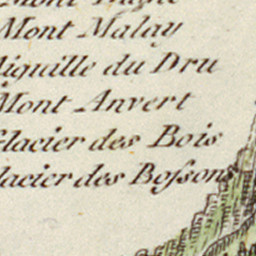 Mont Malay
Aiguille du Dru
Mont Anvert
Glacier des Bois
Glacier des Boſsons